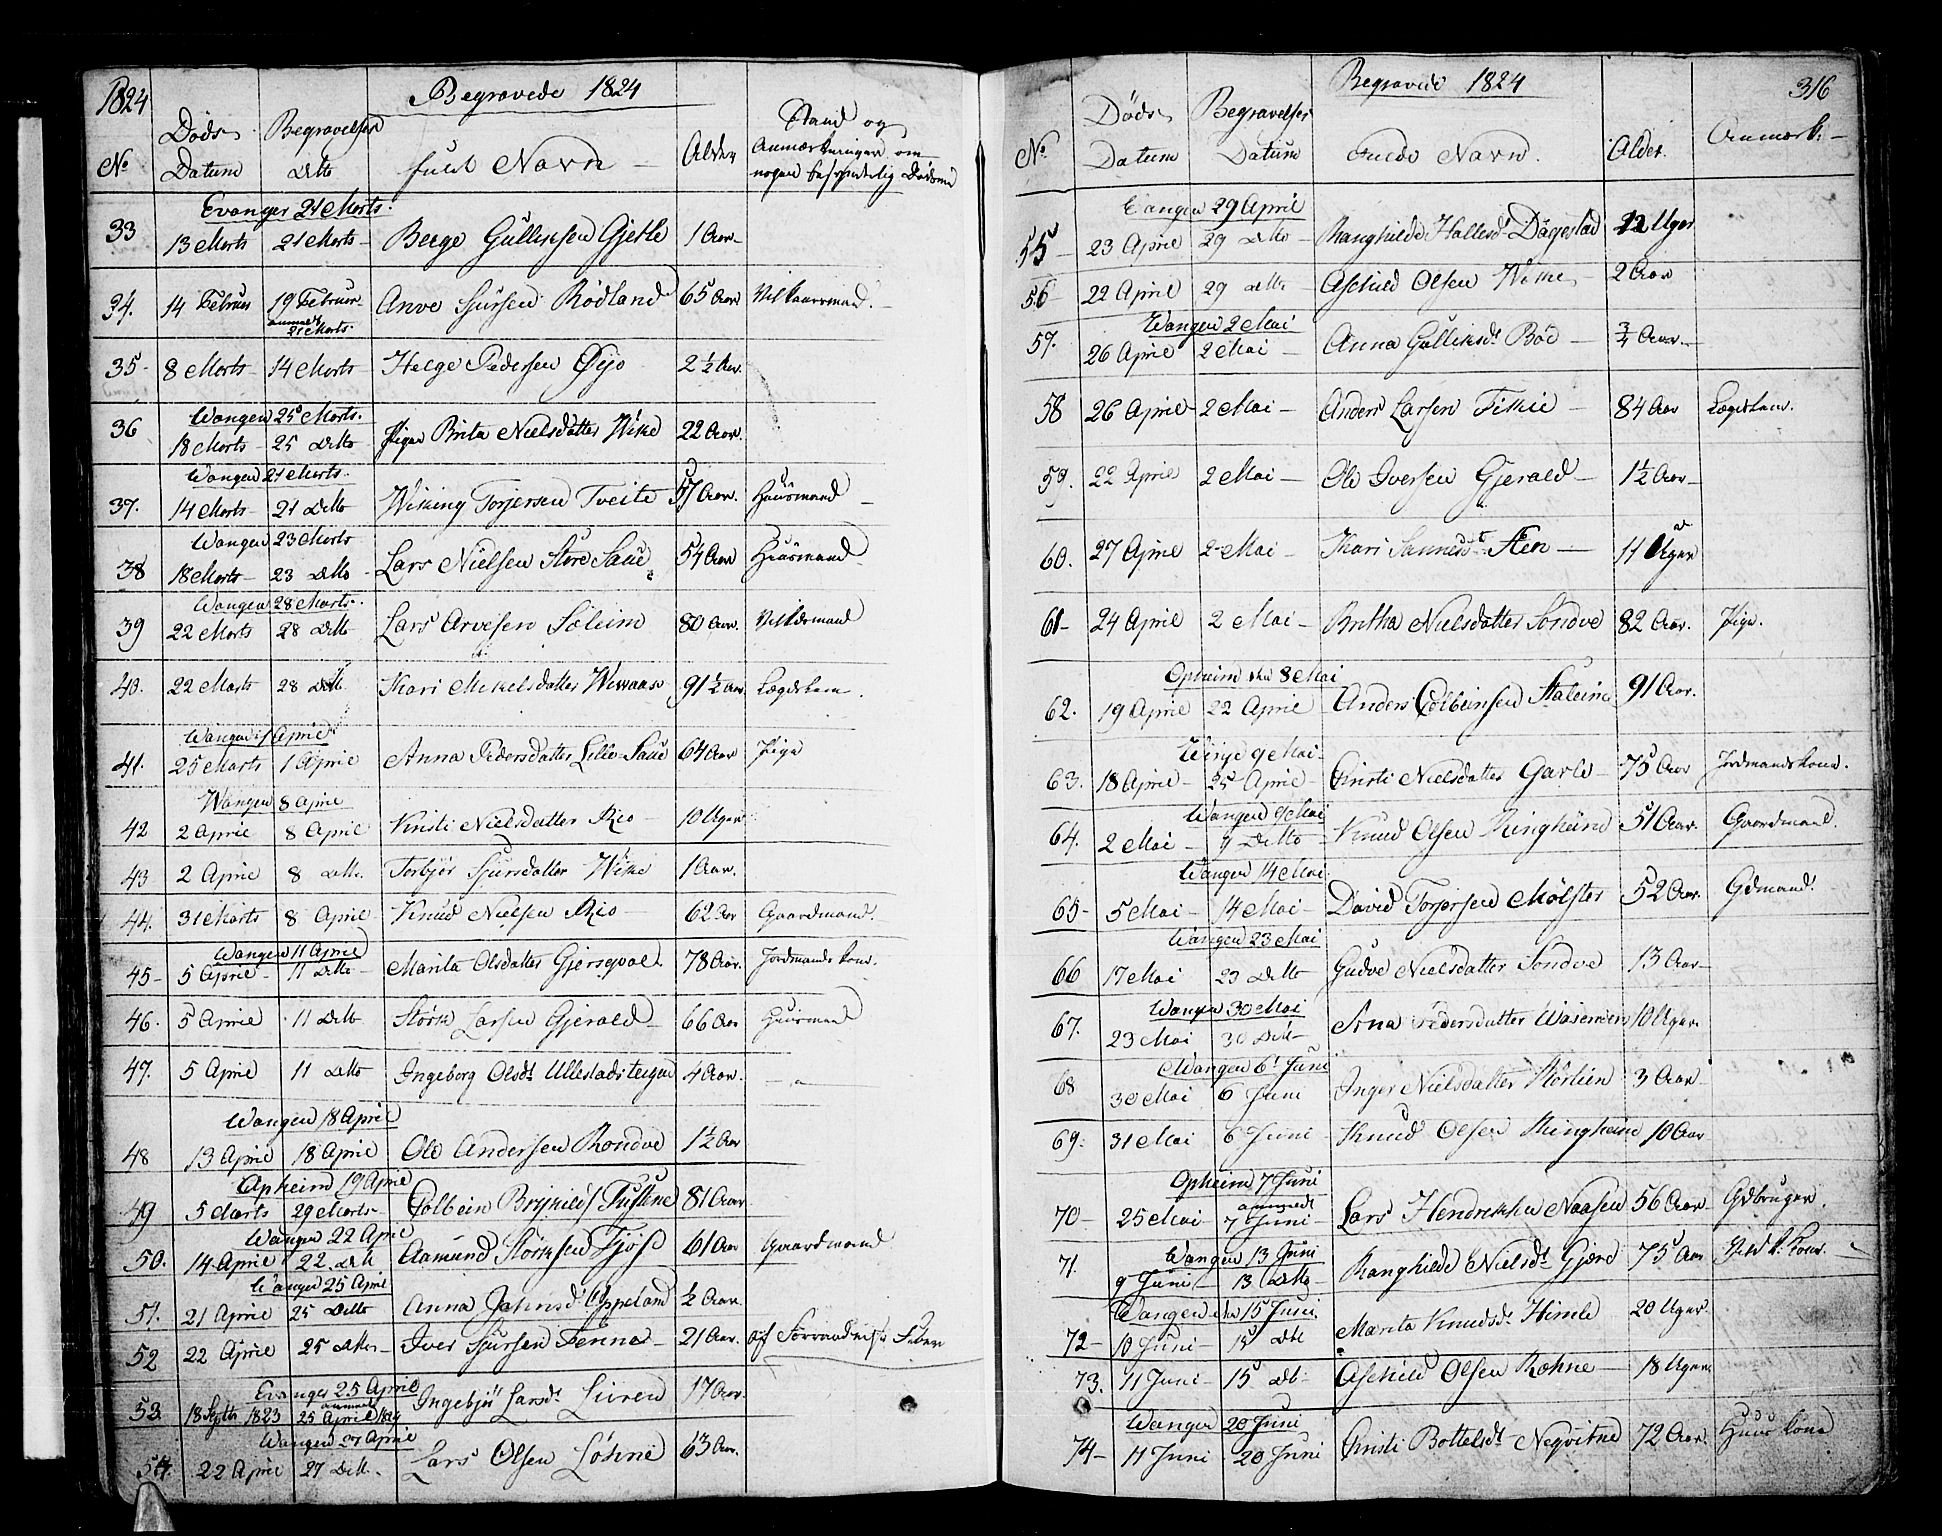 1824 Begravede 1824
Døds Datum Begravelses Ditto
No fuld Navn Alder Stand og Anmærkninger om nogen besynderlig Dødsmaade
Evanger 21 Marts
33 13 Marts 21 Marts Berge Gulliksen Gjelle 1 Aar
34. 14 Februar 19 Februar anmeldt 21 Marts Anve Sjursen Rødland 65 Aar Vilkaarsmand.
35 8 Marts 14 Marts Helge Pedersen Øyo 2 ½ Aar
Wangen 25 Marts.
36 18 Marts 25 Ditto Pigen Brita Nielsdatter Wike 22 Aar.
Wangen 21 Marts.
37. 14 Marts 21 Ditto Wiking Torjersen Tveite 57 Aar. Huusmand
Wangen 23 Marts
38 18 Marts 23 Ditto Lars Nielsen Store Saue 54 Aar Huusmand
Wangen 28 Marts.
39 22 Marts 28 Ditto Lars Arvesen Søleim 80 Aar. Vilk:smand
40. 22 Marts 28 Ditto Kari Mikelsdatter 91 ½ Aar Lægdslem
Wangen 1 April
41. 25 Marts 1 April Anna Pedersdatter Lille Saue 64 Aar Pige
Wangen 8 April
42 2 April 8 April Kristi Nielsdatter Rio 10 Uger
43 2 April 8 Ditto. Torbjør Sjursdatter Wike 1 Aar.
44. 31 Marts 8 April Knud Nielsen Rio 62 Aar Gaardmand.
Wangen 11 April
45 5 April 11 Ditto Marita Olsdatter Gjersqvale 78 Aar. Jordmands kone.
46. 5 April 11 Ditto Størk Larsen Gjerald 66 Aar Huusmand
47. 5 April 11 Ditto Ingeborg Olsdt Ullestadsteigen 4 Aar.
Wangen 18 April
48 13 April 18 April Ole Andersen Rondve 1½ Aar
Opheim 19 April
49 5 Marts 29 Marts Colbein Brynilds Tufthne 81 Aar
Wangen 22 April
50. 14 April 22 Ditto Aamund Størksen Tjøse 61 Aar Gaardmand
Wangen 25 April
51. 21 April 25 Ditto Anna Johnsd Opeland ½ Aar
52 22 April 25 Ditto Iver Sjursen Fenne 21 Aar. af Forraadnelses Feber
Evanger 25 April
53. 18 Septbr 1823 anmeldt 25 April 1824 Ingebjør Larsdt Liiren 17 Aar.
Wangen 27 April
54. 22 April 27 Ditto. Lars Olsen Løhne 63 Aar.
Begravede 1824 316
No. Døds Datum Begravelses Datum Fulde Navn. Alder. Anmærk:
Vangen 29 April
55 23 April 29 Ditto Ranghilde Hallesd Dagestad 12 Uger
56 22 April 29 Ditto Aschild Olsen Wike 2 Aar
Wangen 2 Mai
57. 26 April 2 Mai Anna Gulliksdt Bøe ¾ Aar.
58 26 April 2 Mai Anders Larsen Finne 84 Aar Lægdslem.
59. 22 April 2 Mai Ole Iversen Gjerald 1½ Aar
60. 27 April 2 Mai Kari Sannesdt Steen 11 Uger
61 24 April 2 Mai Britha Nielsdatter Sondve 82 Aar. Pige.
Opheim den 8 Mai
62. 19 April 22 April Anders Colbeinsen Staleim 91 Aar.
Winje 9 Mai
63. 18 April 25 April Kristi Nielsdatter Qarle 75 Aar Jordmands kone.
Wangen 9 Mai
64. 2 Mai 9 Ditto Knud Olsen Ringheim 51 Aar. Gaardmand.
Wangen 14 Mai
65 5 Mai 14 Mai David Torjersen Mølster 52 Aar. Gdmand.
Wangen 23 Mai
66 17 Mai 23 Ditto Gudve Nielsdatter Sondve 13 Aar
Wangen 30 Mai
67. 23 Mai 30 Ditto Anna Pedersdatter Wasenden 10 Uger
Wangen 6 Juni
68 30 Mai 6 Juni Inger Nielsdatter Kørlien 3 Aar
69. 31 Mai 6 Juni Knud Olsen Ringheim 10 Aar
Opheim 7 Juni
70 25 Mai anmeldt 7 Juni Lars Hendriksen Naasen 56 Aar Gdbruger.
Wangen 13 Juni
71. 9 Juni 13 Ditto Ranghilde Nielsdt Gjøre 75 Aar Vilk: kone.
Wangen den 15 Juni
72 10 Juni 15 Ditto Marita Knudsdt Himle 20 Uger.
73. 11 Juni 15 Ditto Aschild Olsen Røhne 18 Uger
Wangen 20 Juni
74 11 Juni 20 Juni Kristi Bottelsdt Neqvitne 72 Aar. Huus kone